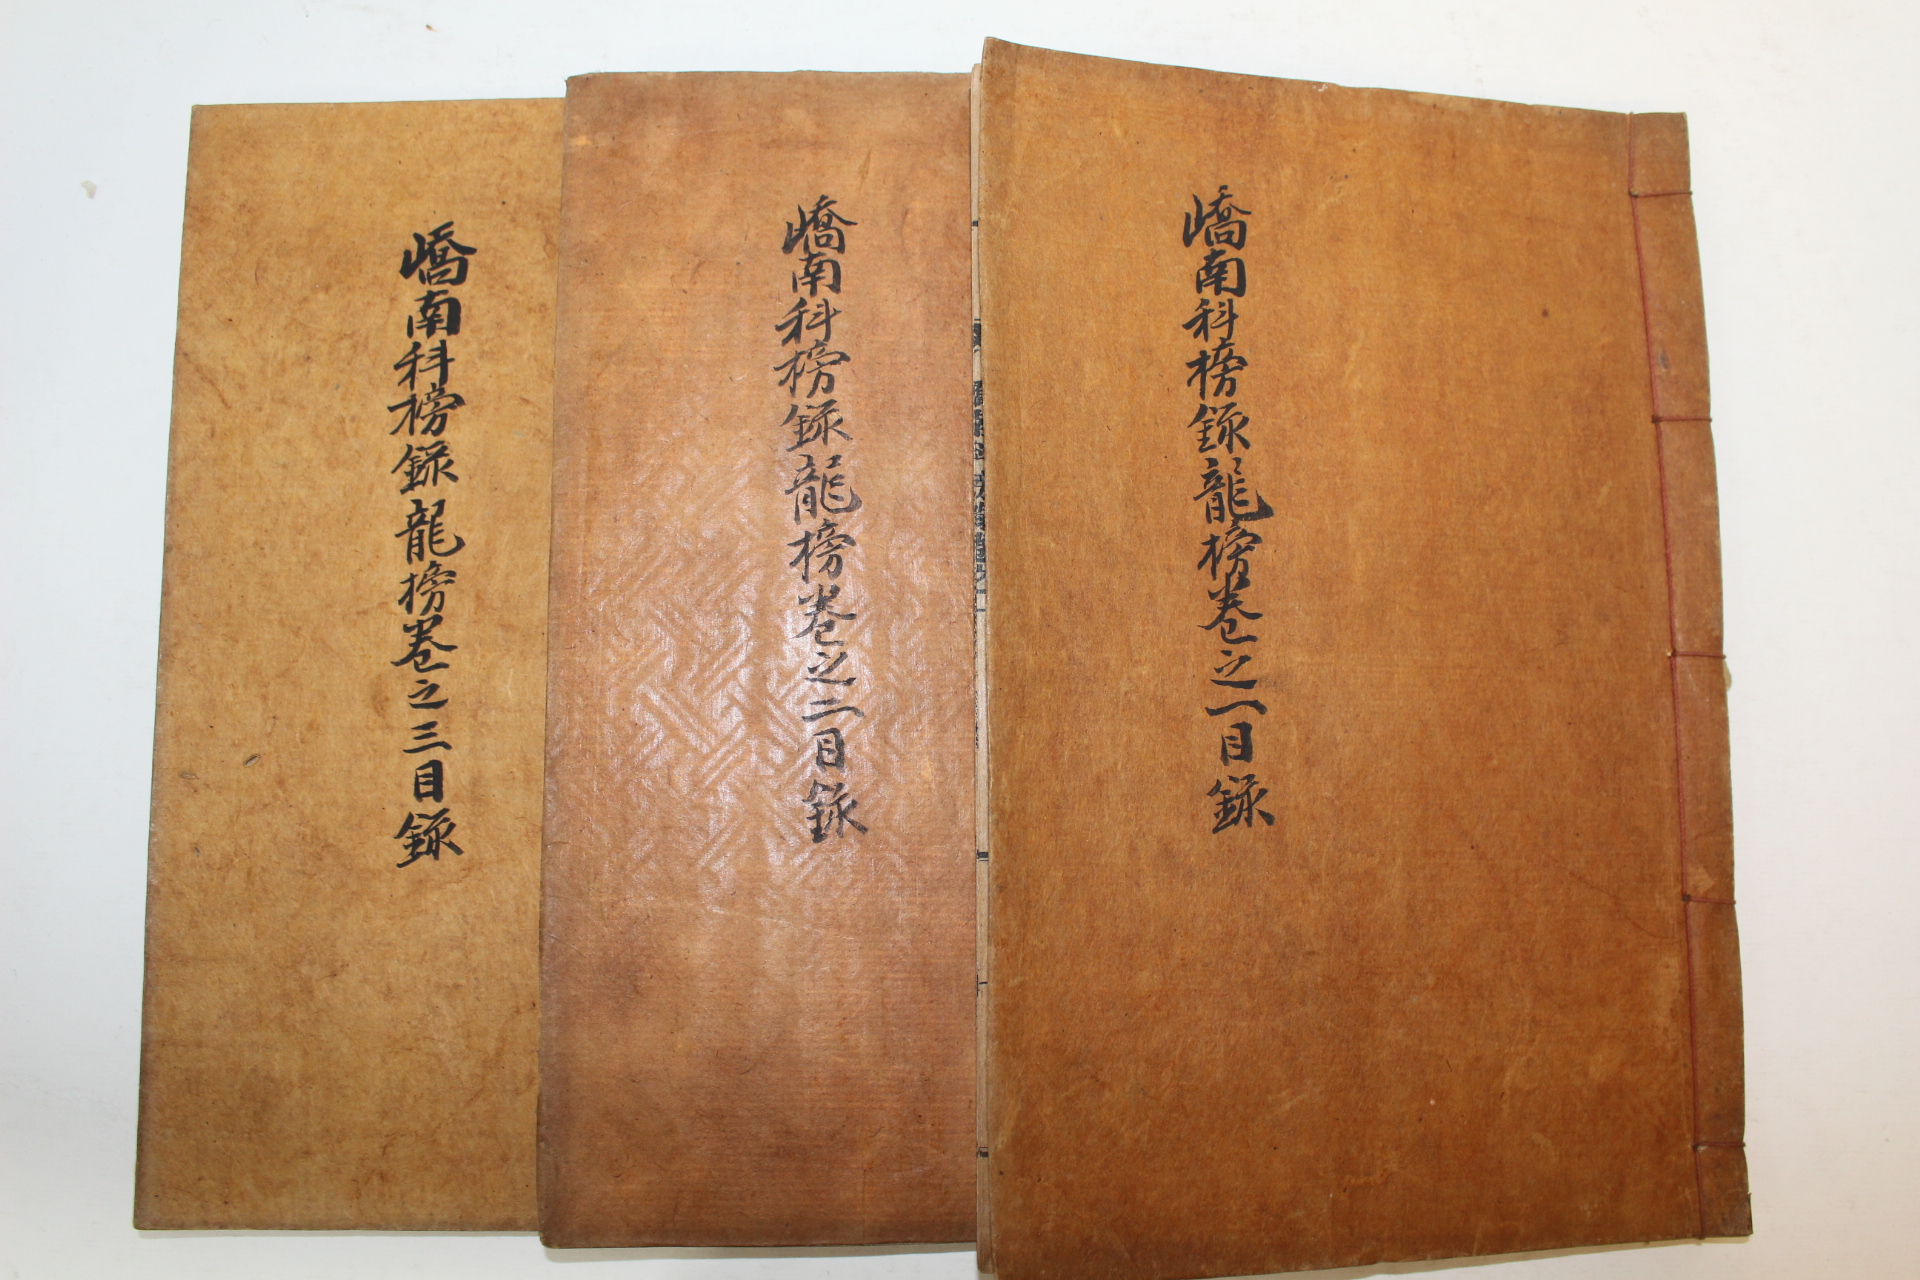 嶠南科榜錄龍榜卷之一目錄
嶠南科榜錄龍榜卷之二目錄
嶠南科榜錄龍榜卷之三目錄